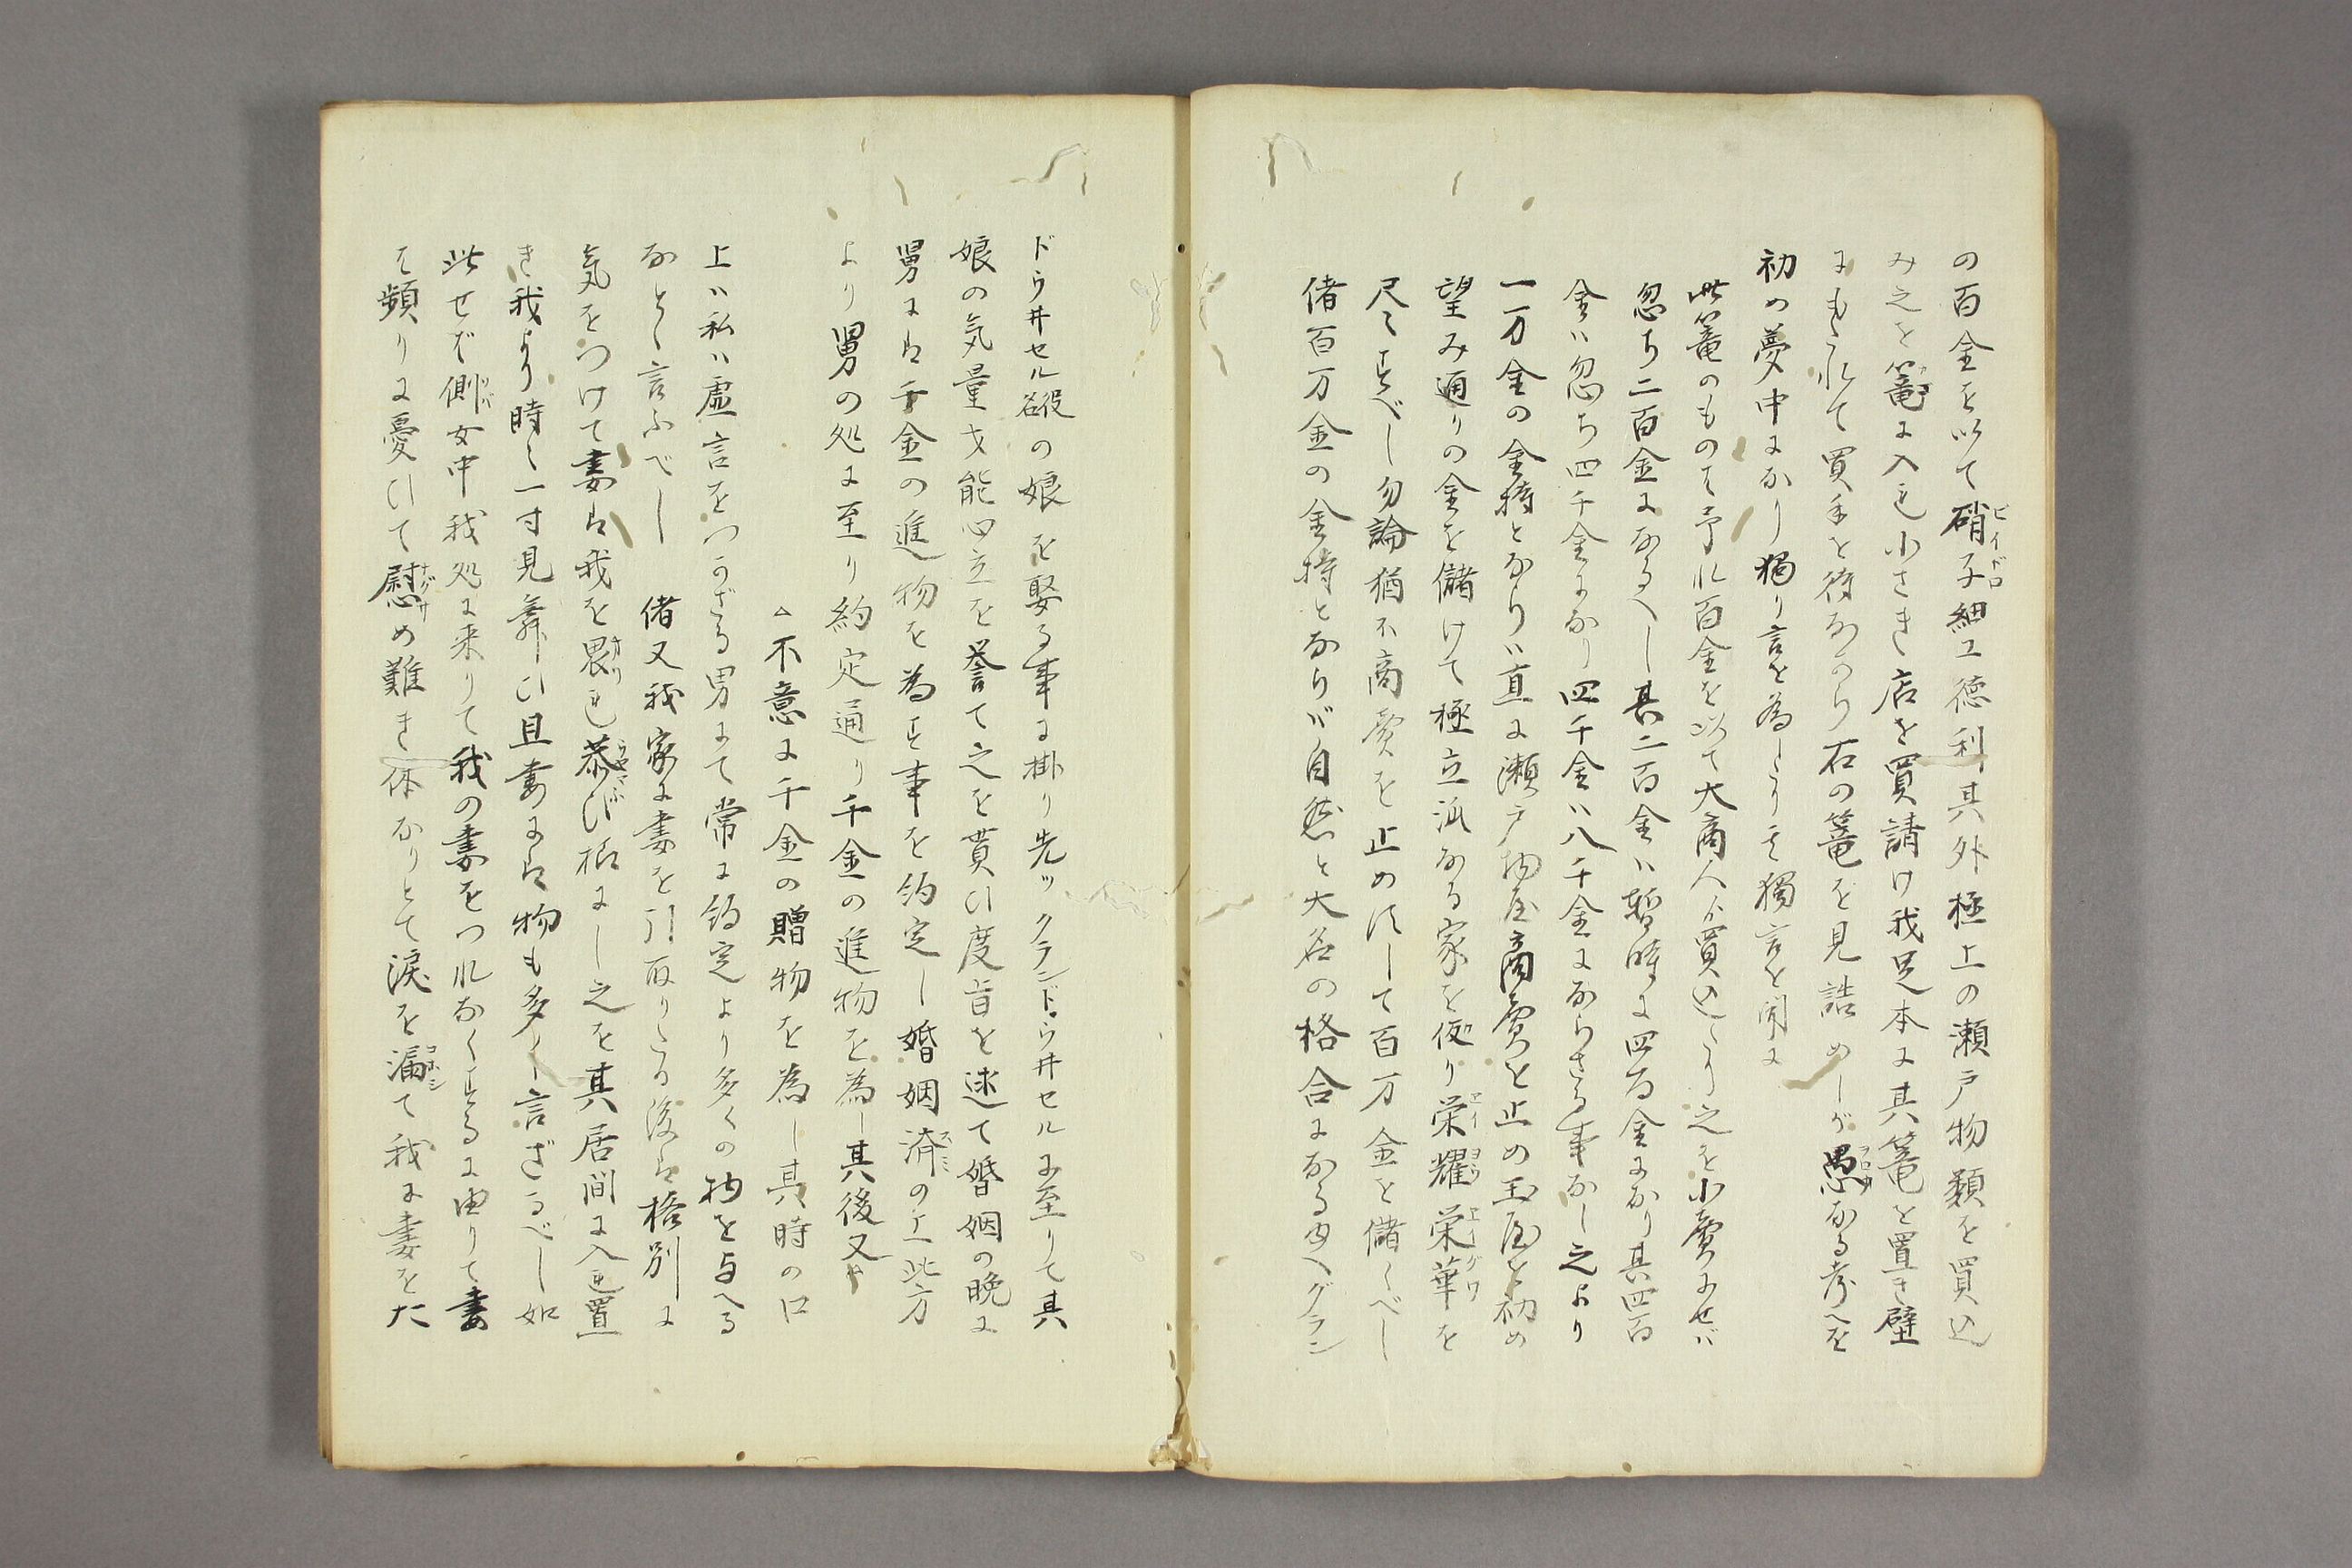 の百金を以て硝子細工徳利其外極上の瀬戸物類を買込
み之を篭に入れ小さき店を買請け我足本に其篭を置き壁
にもたれて買手を待ながら右の篭を見詰めしが愚なる考へを
初め夢中になり独り言を為したり其獨言を聞に
此篭のものは予れ百金を以て大商人より買込たり之を小賣にせバ
忽ち二百金になるへし其二百金ハ暫時に四百金になり其四百
金ハ忽ち四千金になり四千金ハ八千金にならさる事なし之より
一万金の金持となりハ直に瀬戸物屋商賣を止め玉屋を初め
望み通りの金を儲けて極立派なる家を使り栄耀栄華を
尽すべし勿論猶不商賣を止めにして百万金を儲くべし
偖百万金の金持となりバ自然と大名の格合になる由へグラン
ドウ井セル役名の娘を娶る事に掛り先ッグランドウ井セルに至りて其
娘の気量才能心立を誉て之を貰ひ度旨を述て婚姻の晩に
舅には千金の進物を為す事を約定し婚姻済の上此方
より舅の処に至り約定通り千金の進物を為し其後又
△不意に千金の贈物を為し其時の口
上ハ私ハ虚言をつかざる男にて常に約定より多くの物を与へる
なと言ふべし 偖又我家に妻を引取りたる後は格別に
気をつけて妻は我を畏れ恭び様にし之を其居間に入れ置
き我より時々一寸見舞ひ且妻には物も多く言ざるべし如
此せば側女中我処に来りて我の妻をつれなくするに由りて妻
は頻りに憂ひて慰め難き体なりとて涙を漏て我に妻をた